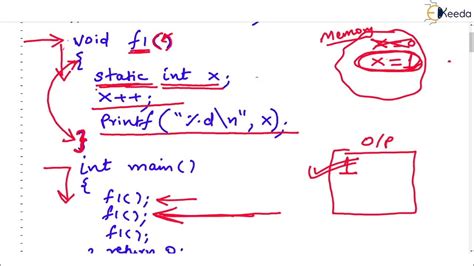 Keeda
void f1()
{
static int x;
x++;
Printf("%d\n", x);
}
int main()
{
f1();
f1();
f1();
return 0;
Memory
x=0
x=1
O/P
1